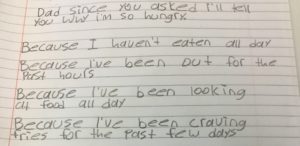 Dad since you asked I'll tell
you why i'm so hungry
Because I haven't eaten all day
Because I've been out for the
past hours
Because I've been looking
at food all day
Because I've been craving
fries for the past few days